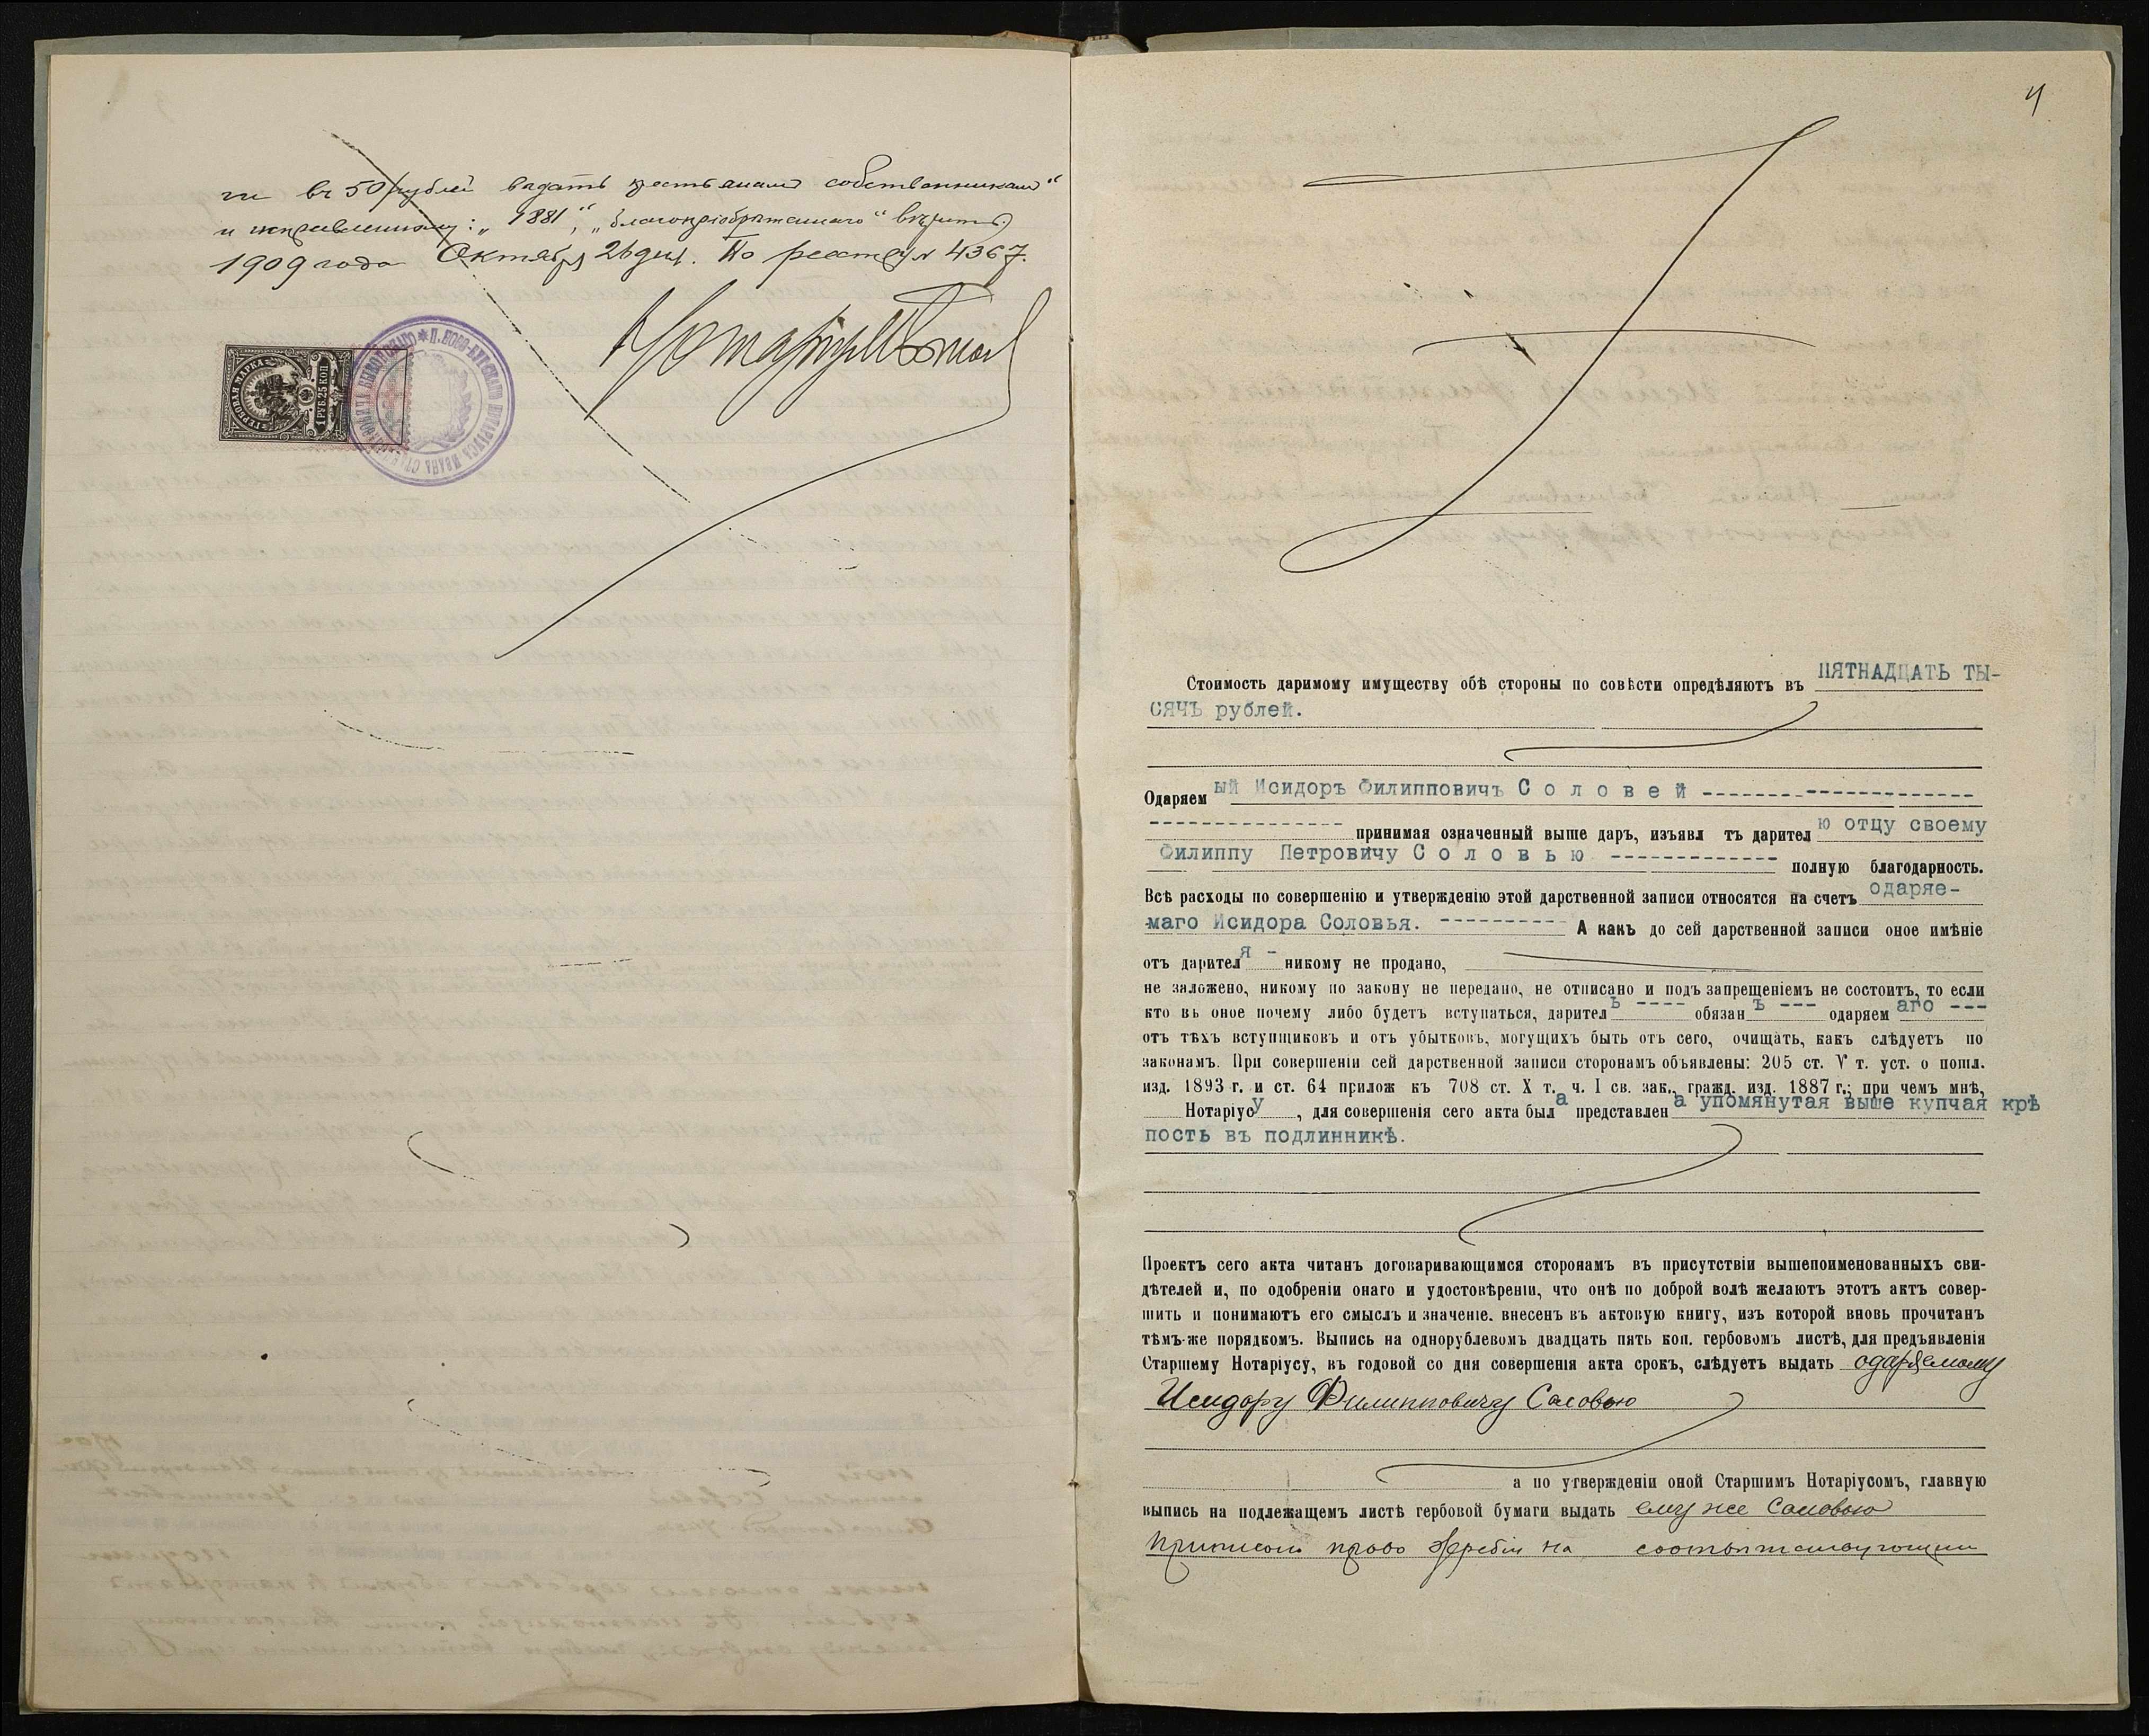 въ 50 рублей выдать крестьянамъ собственникамъ"
и исправленному: "1881", "благопріобрѣтеннаго" вѣрить.
1909 года Октября 26 дня. По реестру № 4367.
Нотаріусъ
ГЕРБОВАЯ МАРКА
1 РУБ. 25 КОП
4
Стоимость даримому имуществу обѣ стороны по совѣсти опредѣляютъ въ ПЯТНАДЦАТЬ ТЫ-
СЯЧЪ рублей.
Одаряемый Исидоръ Филипповичъ С о л о в е й ----------------------
--------------- принимая означенный выше даръ, изъявл тъ дарителю отцу своему
Филиппу Петровичу С о л о в ь ю ------------- полную благодарность.
Всѣ расходы по совершенію и утвержденію этой дарственной записи относятся на счетъ одаряе-
маго Исидора Соловья. ---------- А какъ до сей дарственной записи оное имѣніе
отъ дарителя - никому не продано,
не заложено, никому по закону не передано, не отписано и подъ запрещеніемъ не состоитъ, то если
кто въ оное почему либо будетъ вступаться, дарителъ ---- обязанъ --- одаряемаго ---
отъ тѣхъ вступщиковъ и отъ убытковъ, могущихъ быть отъ сего, очищать, какъ слѣдуетъ по
законамъ. При совершеніи сей дарственной записи сторонамъ объявлены: 205 ст. V т. уст. о пошл.
изд. 1893 г. и ст. 64 прилож къ 708 ст. X т. ч. I св. зак., гражд. изд. 1887 г.; при чемъ мнѣ,
Нотаріусу, для совершенія сего акта была представлена упомянутая выше купчая крѣ
пость въ подлинникѣ.
Проектъ сего акта читанъ договаривающимся сторонамъ въ присутствіи вышепоименованныхъ сви-
дѣтелей и, по одобреніи онаго и удостовѣреніи, что онѣ по доброй волѣ желаютъ этотъ актъ совер-
шить и понимаютъ его смыслъ и значеніе. внесенъ въ актовую книгу, изъ которой вновь прочитанъ
тѣмъ-же порядкомъ. Выпись на однорублевомъ двадцать пять коп. гербовомъ листѣ, для предъявленія
Старшему Нотаріусу, въ годовой со дня совершенія акта срокъ, слѣдуетъ выдать одаряемому
Исидору Филипповичу Соловью
а по утвержденіи оной Старшимъ Нотаріусомъ, главную
выпись на подлежащемъ листѣ гербовой бумаги выдать ему же Соловью
на соотвѣтствующем